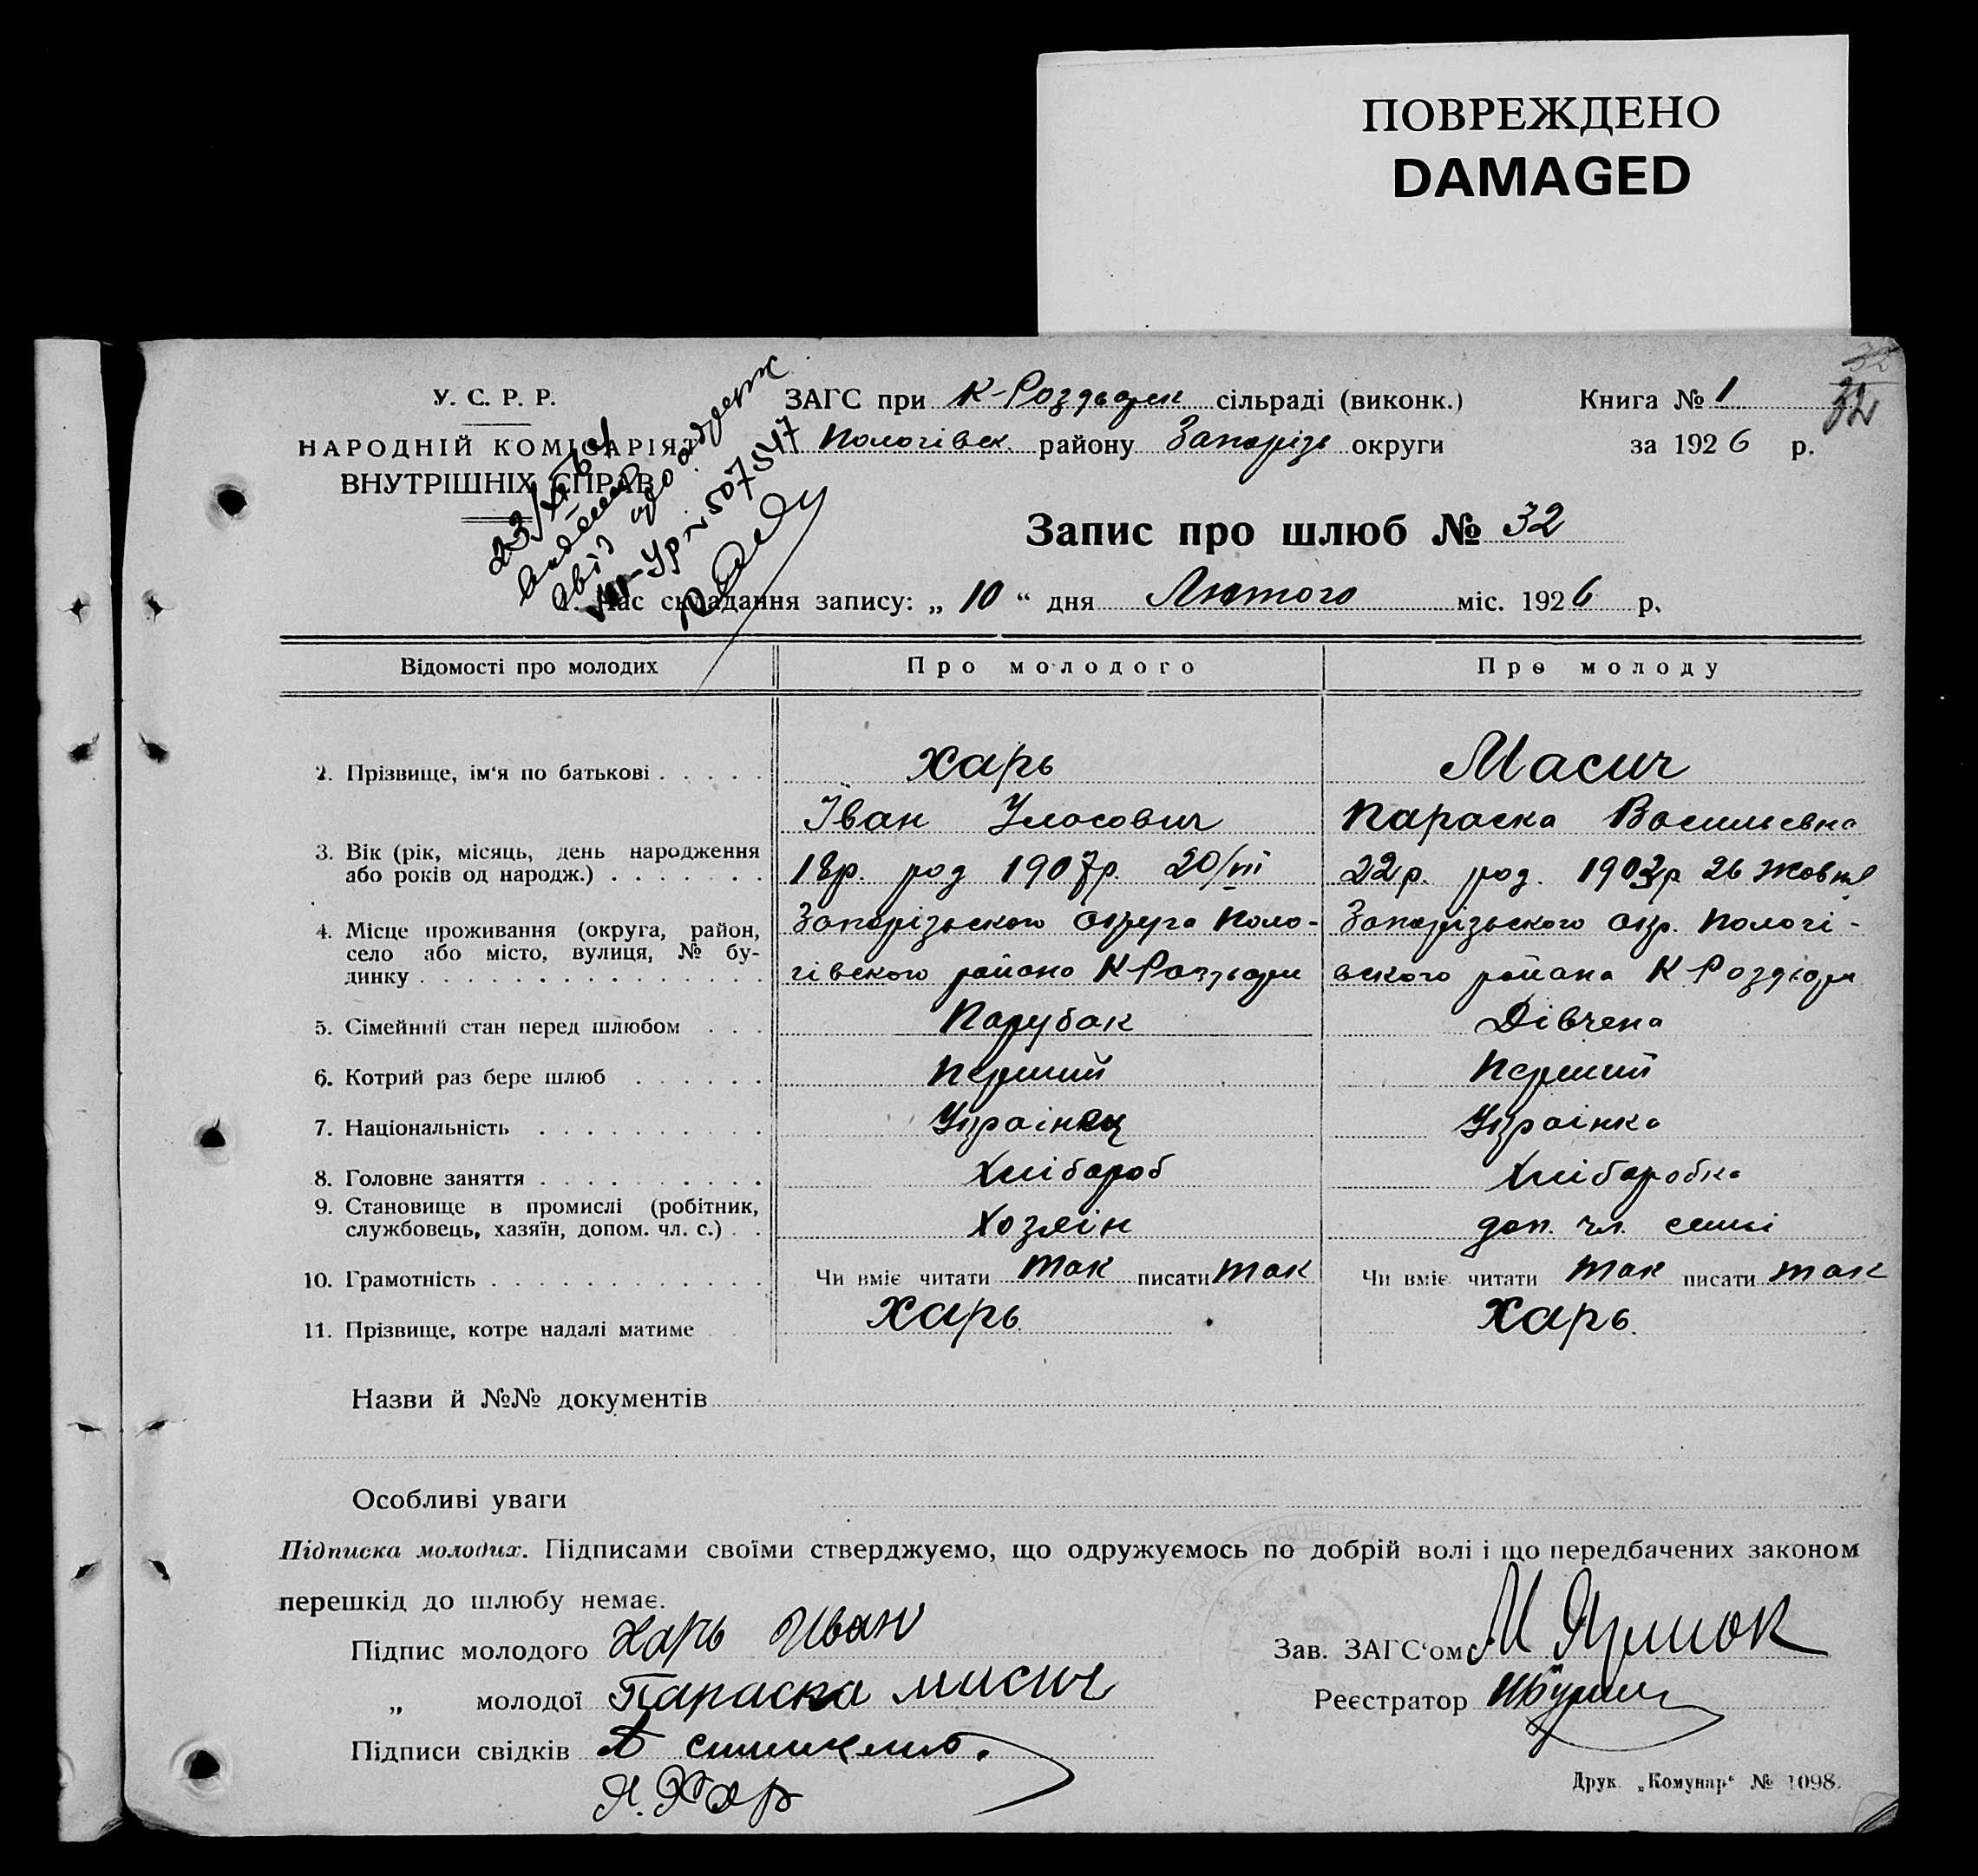 ПОВРЕЖДЕНО
DAMAGED
32
32
У. С. Р. Р.
НАРОДНІЙ КОМІСАРІЯТ
ВНУТРІШНІХ СПРАВ
ЗАГС при К-Роздорск сільраді (виконк.)
Книга № 1
Пологівск. району Запоріз округи
за 1926 р.
№ 507547
Запис про шлюб № 32
1. Час складання запису: „ 10 “ дня Лютого міс. 1926 р.
Відомості про молодих Про молодого Про молоду
2. Прізвище, ім‘я по батькові . . . . . Харь Масич
Іван Уласович Параска Васильевна
3. Вік (рік, місяць, день народження
або років од народж.) . . . . . . . 18р. род 1907р. 20/VII 22р. род. 1903р 26 Жовтня
4. Місце проживання (округа, район,
село або місто, вулиця, № бу-
динку . . . . . . . . . . . . . . .
Запорізького округа Поло- Запорізького окр. Пологі-
гівского района К Роздори вского района К Роздори
5. Сімейний стан перед шлюбом . . . Парубок Дівчена
6. Котрий раз бере шлюб . . . . . . Перший Перший
7. Національність . . . . . . . . . . Українец Українка
8. Головне заняття . . . . . . . . . . Хлібороб Хліборобка
9. Становище в промислі (робітник,
службовець, хазяїн, допом. чл. с.) . . Хозяїн доп. чл. семї
10. Грамотність . . . . . . . . . . . . Чи вміє читати так писати так Чи вміє читати так писати так
11. Прізвище, котре надалі матиме . . Харь Харь.
Назви й №№ документів
Особливі уваги
Підписка молодих. Підписами своїми стверджуємо, що одружуємось по добрій волі і що передбачених законом
перешкід до шлюбу немає.
Підпис молодого Харь Иван
Зав. ЗАГС‘ом
„ молодої Параска мисич
Реєстратор
Підписи свідків
Я. Хар
Друк. „Комунар“ № 1098.